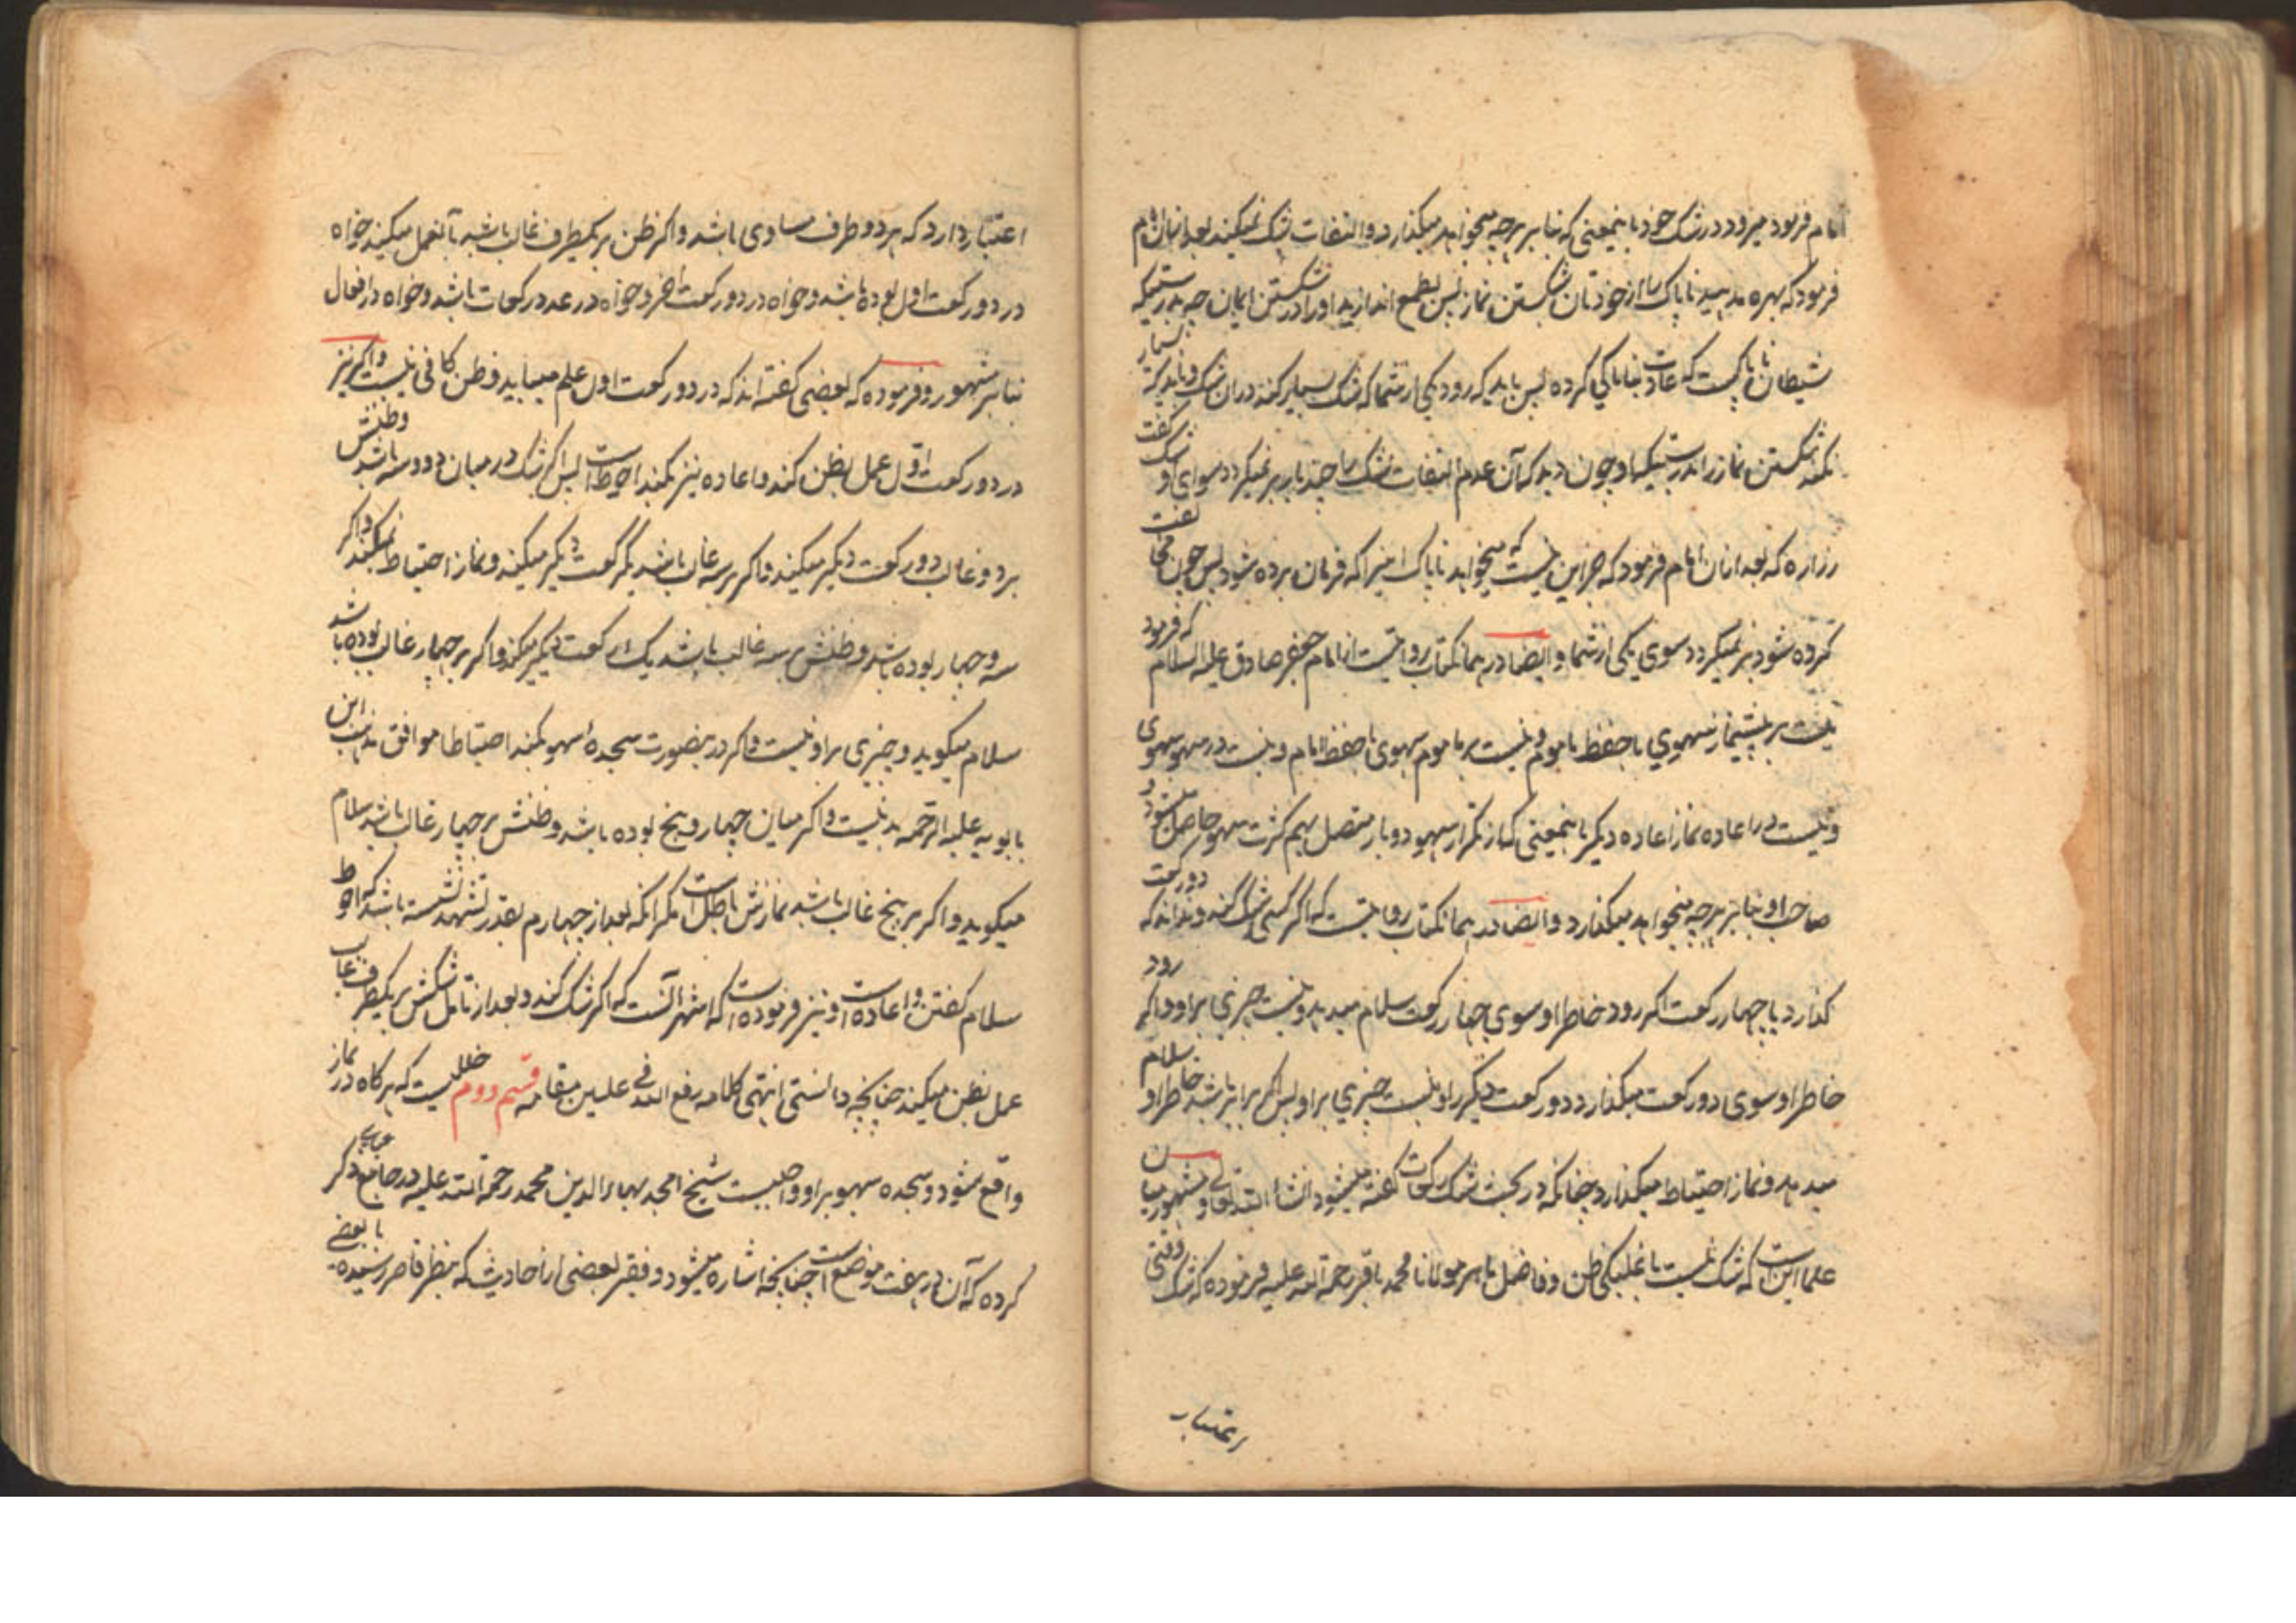 امام فرمود میرود در شک خود باینمعنی که بنا بر هرچه میخواهد میگذارد و التفات بشک نمیکند بعد ازان امام
فرمود که بهره مدهید ناپاک را از خودتان شکستن نماز پس بطمع اندازید او را در شکستن ایمان چه بدرستیکه
شیطان ناپاکیست که عادت بناپاکی کرده پس باید که رود یکی از شما که شک بسیار کند دران شک و باید که بسیار
نکند شکستن نماز را بدرستیکه او چون دید که آن عدم التفات بشک را چند بار بر نمیگردد سوای او شک گفت
زراره که بعد ازان امام فرمود که جز این نیست که میخواهد ناپاک اینرا که فرمان برده شود پس چون مخالفت
کرده شود بر نمیگردد سوی یکی از شما و ایضا در همانکتاب روایتست از امام جعفر صادق علیه السلام که فرمود
نیست بر پیشنماز سهوی با حفظ ماموم و نیست بر ماموم سهوی با حفظ امام و نیست در سهو سهوی
و نیست در اعاده نماز اعاده دیگر باینمعنی که از تکرار سهو دو بار متصل بهم کثرت سهو حاصل میشود و
صاحب او بنا بر هرچه میخواهد میگذارد و ایضا در همانکتاب روایتست که اگر کسی شک کند و نداند که دو رکعت
گذارد یا چهار رکعت اگر رود خاطر او سوی چهار رکعت سلام میدهد و نیست چیزی بر او و اگر رود
خاطر او سوی دو رکعت میگذارد دو رکعت دیگر را و نیست چیزی بر او پس اگر برابر باشد خاطر او سلام
میدهد و نماز احتیاط میگذارد چنانکه در بحث شک رکعات گفته میشود انشا الله تعالی و مشهور میان
علما این است که شک نیست با غلبگی ظن و فاضل ماهر مولانا محمد باقر رحمة الله علیه فرموده که شک وقتی
اعتبار دارد که هر دو طرف مساوی باشد و اگر ظن بر یکطرف غالب باشد بآن عمل میکند خواه
در دو رکعت اول بوده باشد و خواه در دو رکعت آخر و خواه در عدد رکعات باشد و خواه در افعال
بنا بر مشهور و فرموده که بعضی گفته اند که در دو رکعت اول علم میباید و ظن کافی نیست و اگر نیز
در دو رکعت اول عمل بظن کند و اعاده نیز بکند احوط است پس اگر شک در میان دو و سه باشد و ظنش
بر دو غالب دو رکعت دیگر میکند و اگر بر سه غالب باشد یکرکعت دیگر میکند و نماز احتیاط نمیکند و اگر
سه و چهار بوده باشد و ظنش بر سه غالب باشد یک رکعت دیگر میکند و اگر بر چهار غالب بوده باشد
سلام میگوید و چیزی بر او نیست و اگر درینصورت سجده سهو بکند احتیاطا موافق مذهب ابن
بابویه علیه الرحمه بد نیست و اگر میان چهار و پنج بوده باشد و ظنش بر چهار غالب باشد سلام
میگوید و اگر بر پنج غالب باشد نمازش باطل است مگر آنکه بعد از چهارم بقدر تشهد نشسته باشد که احوط
سلام گفتن و اعاده است و نیز فرموده است که اشهر آنست که اگر شک کند و بعد از تامل شکش بر یکطرف غالب
عمل بظن میکند چنانچه دانستی انتهی کلامه رفع الله فی علیین مقامه قسم دوم خللیست که هرگاه در نماز
واقع شود و سجده سهو بر او واجبیست شیخ امجد بهاء الدین محمد رحمة الله علیه در جامع عباسی ذکر
کرده که آن در هفت موضع است چنانچه اشاره میشود و فقیر بعضی از احادیث که بنظر قاصر رسیده با بعضی